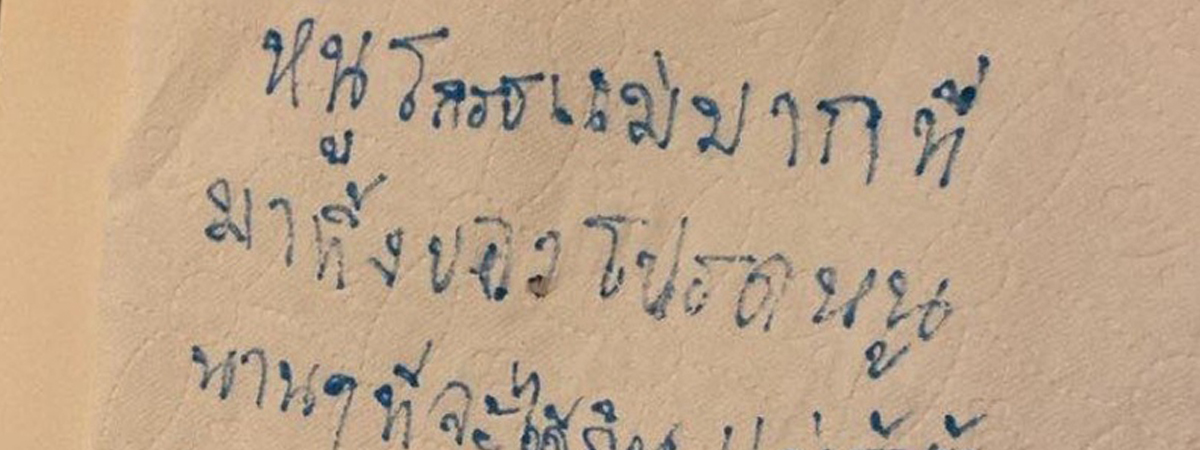 หนูโกรธแม่มากที่
มาทิ้งของโปรดหนู
นานๆทีจะได้กิน